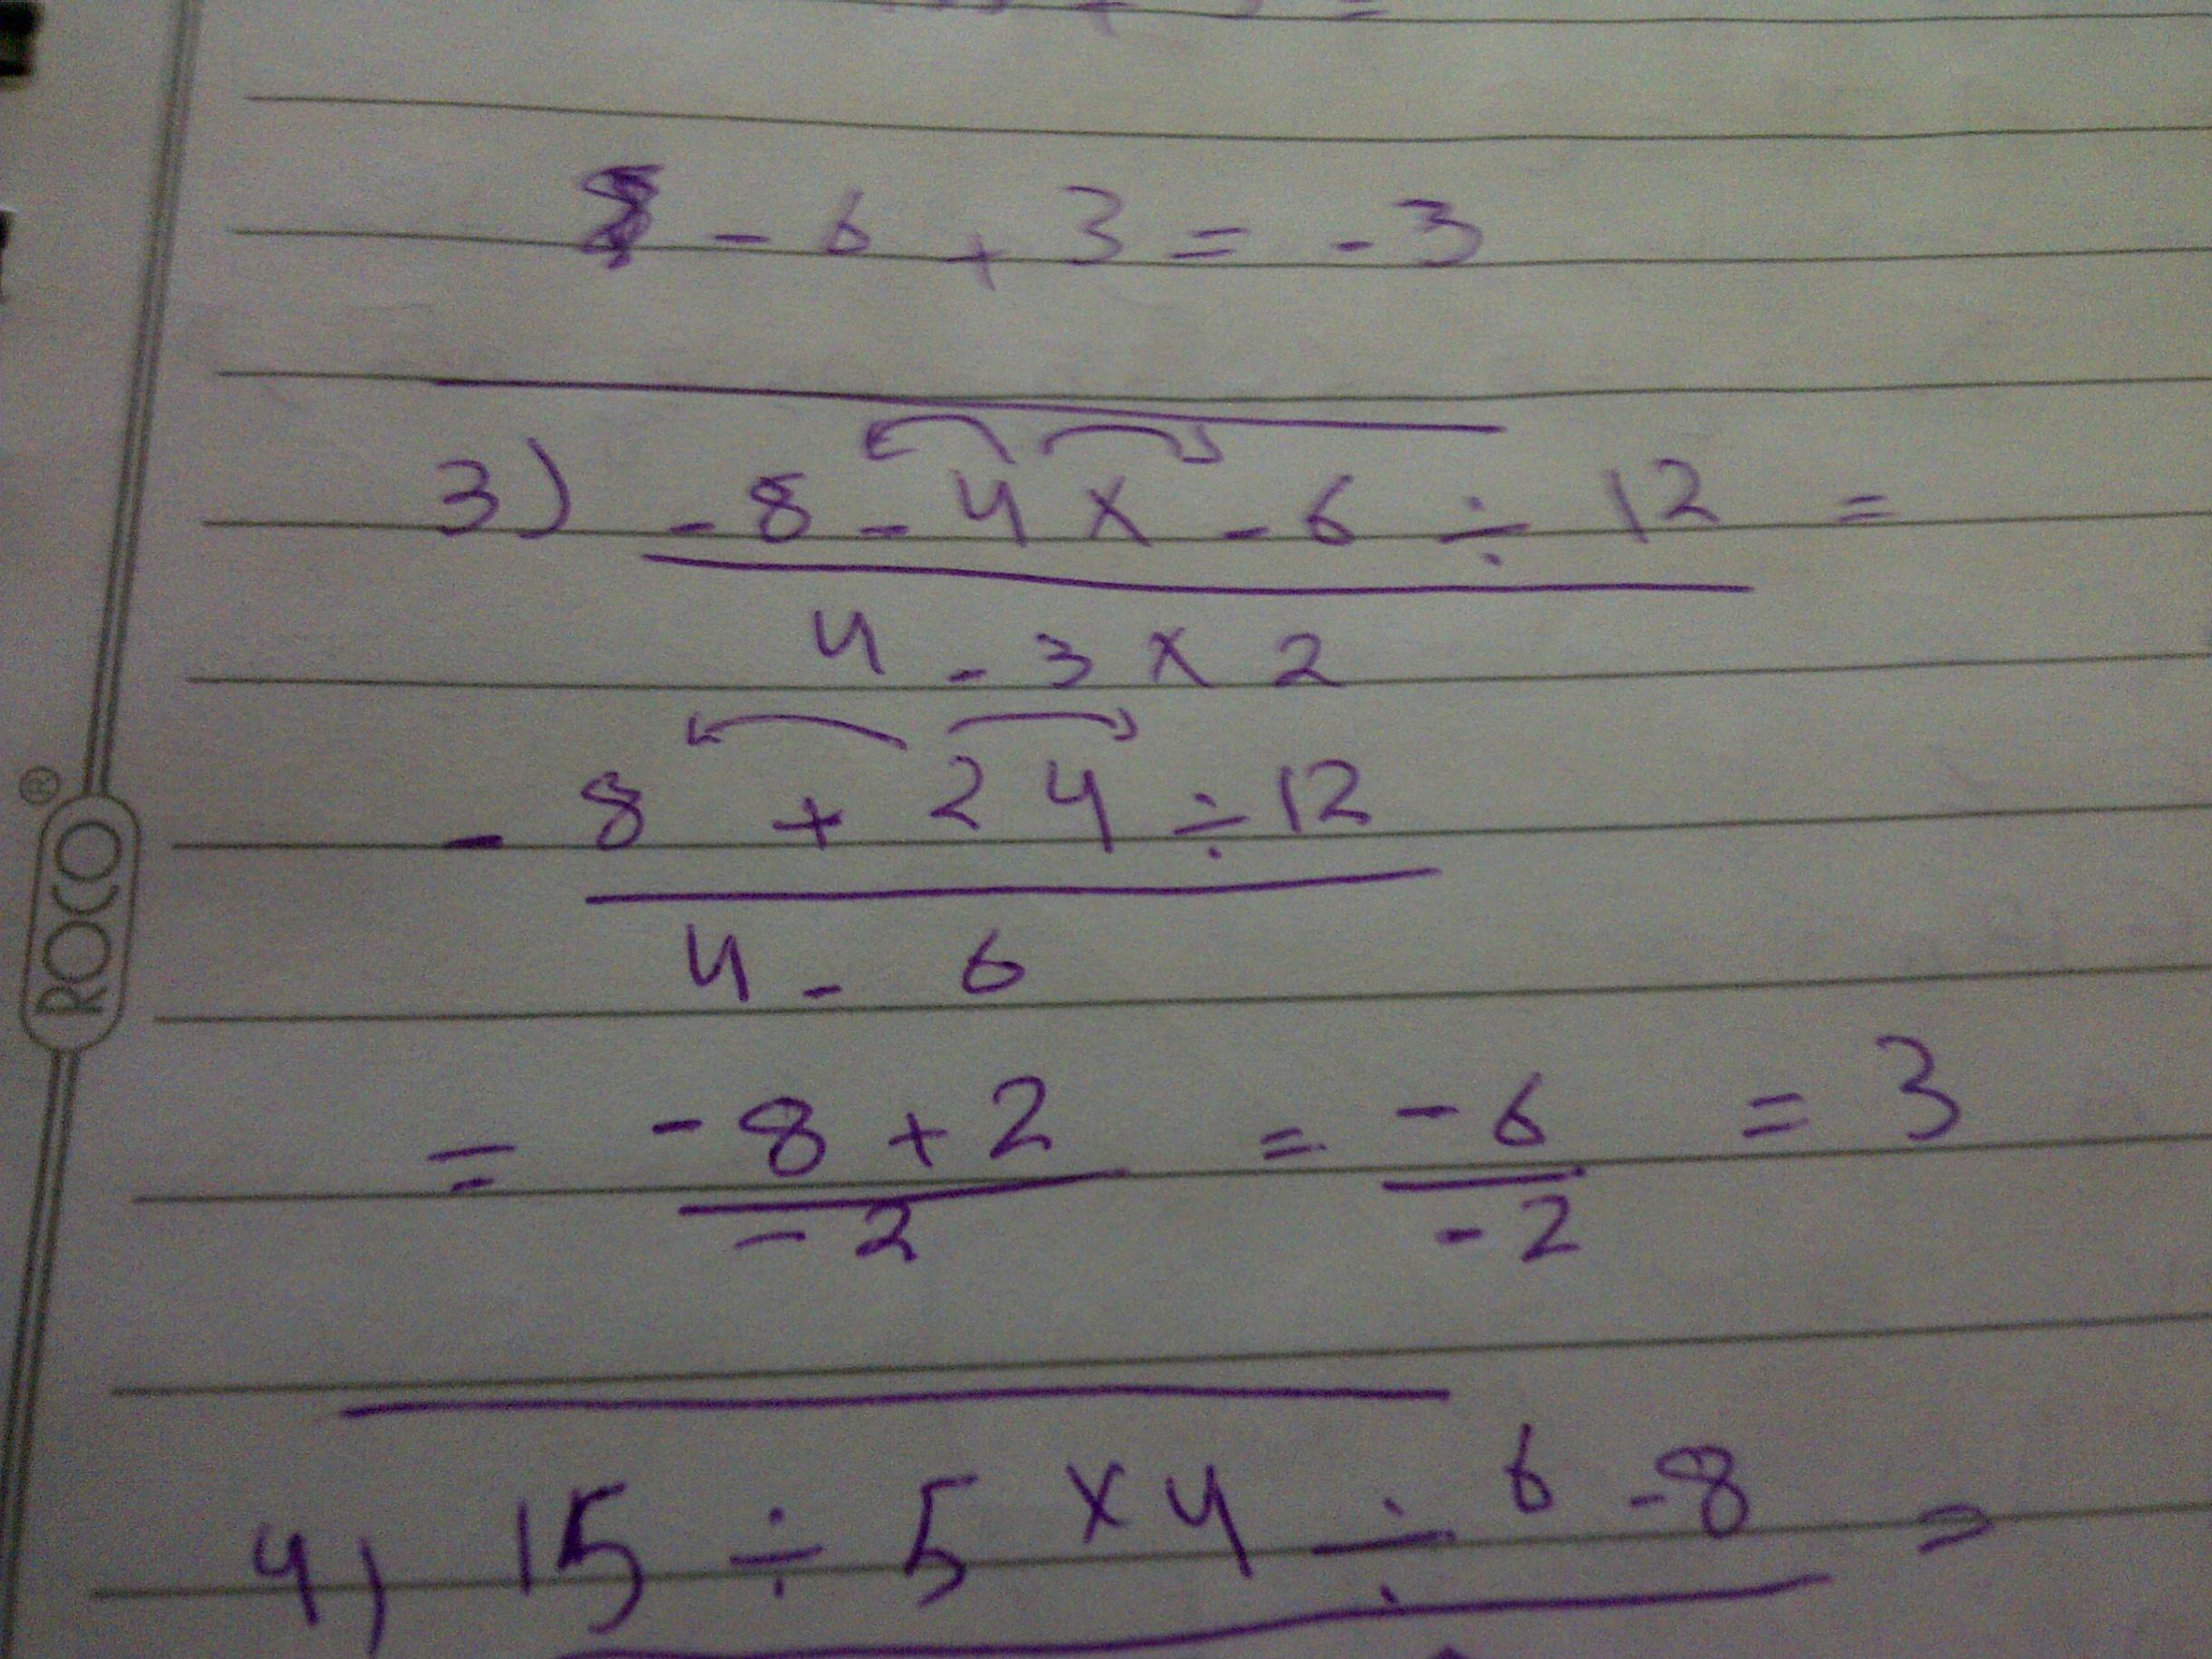 - 6 + 3 = - 3
3) - 8 - 4 x - 6 ÷ 12 =
4 - 3 x 2
- 8 + 24 ÷ 12
4 - 6
= - 8 + 2 = - 6 = 3
- 2 - 2
4) 15 ÷ 5 x 4 ÷ 6 - 8 =
ROCO®